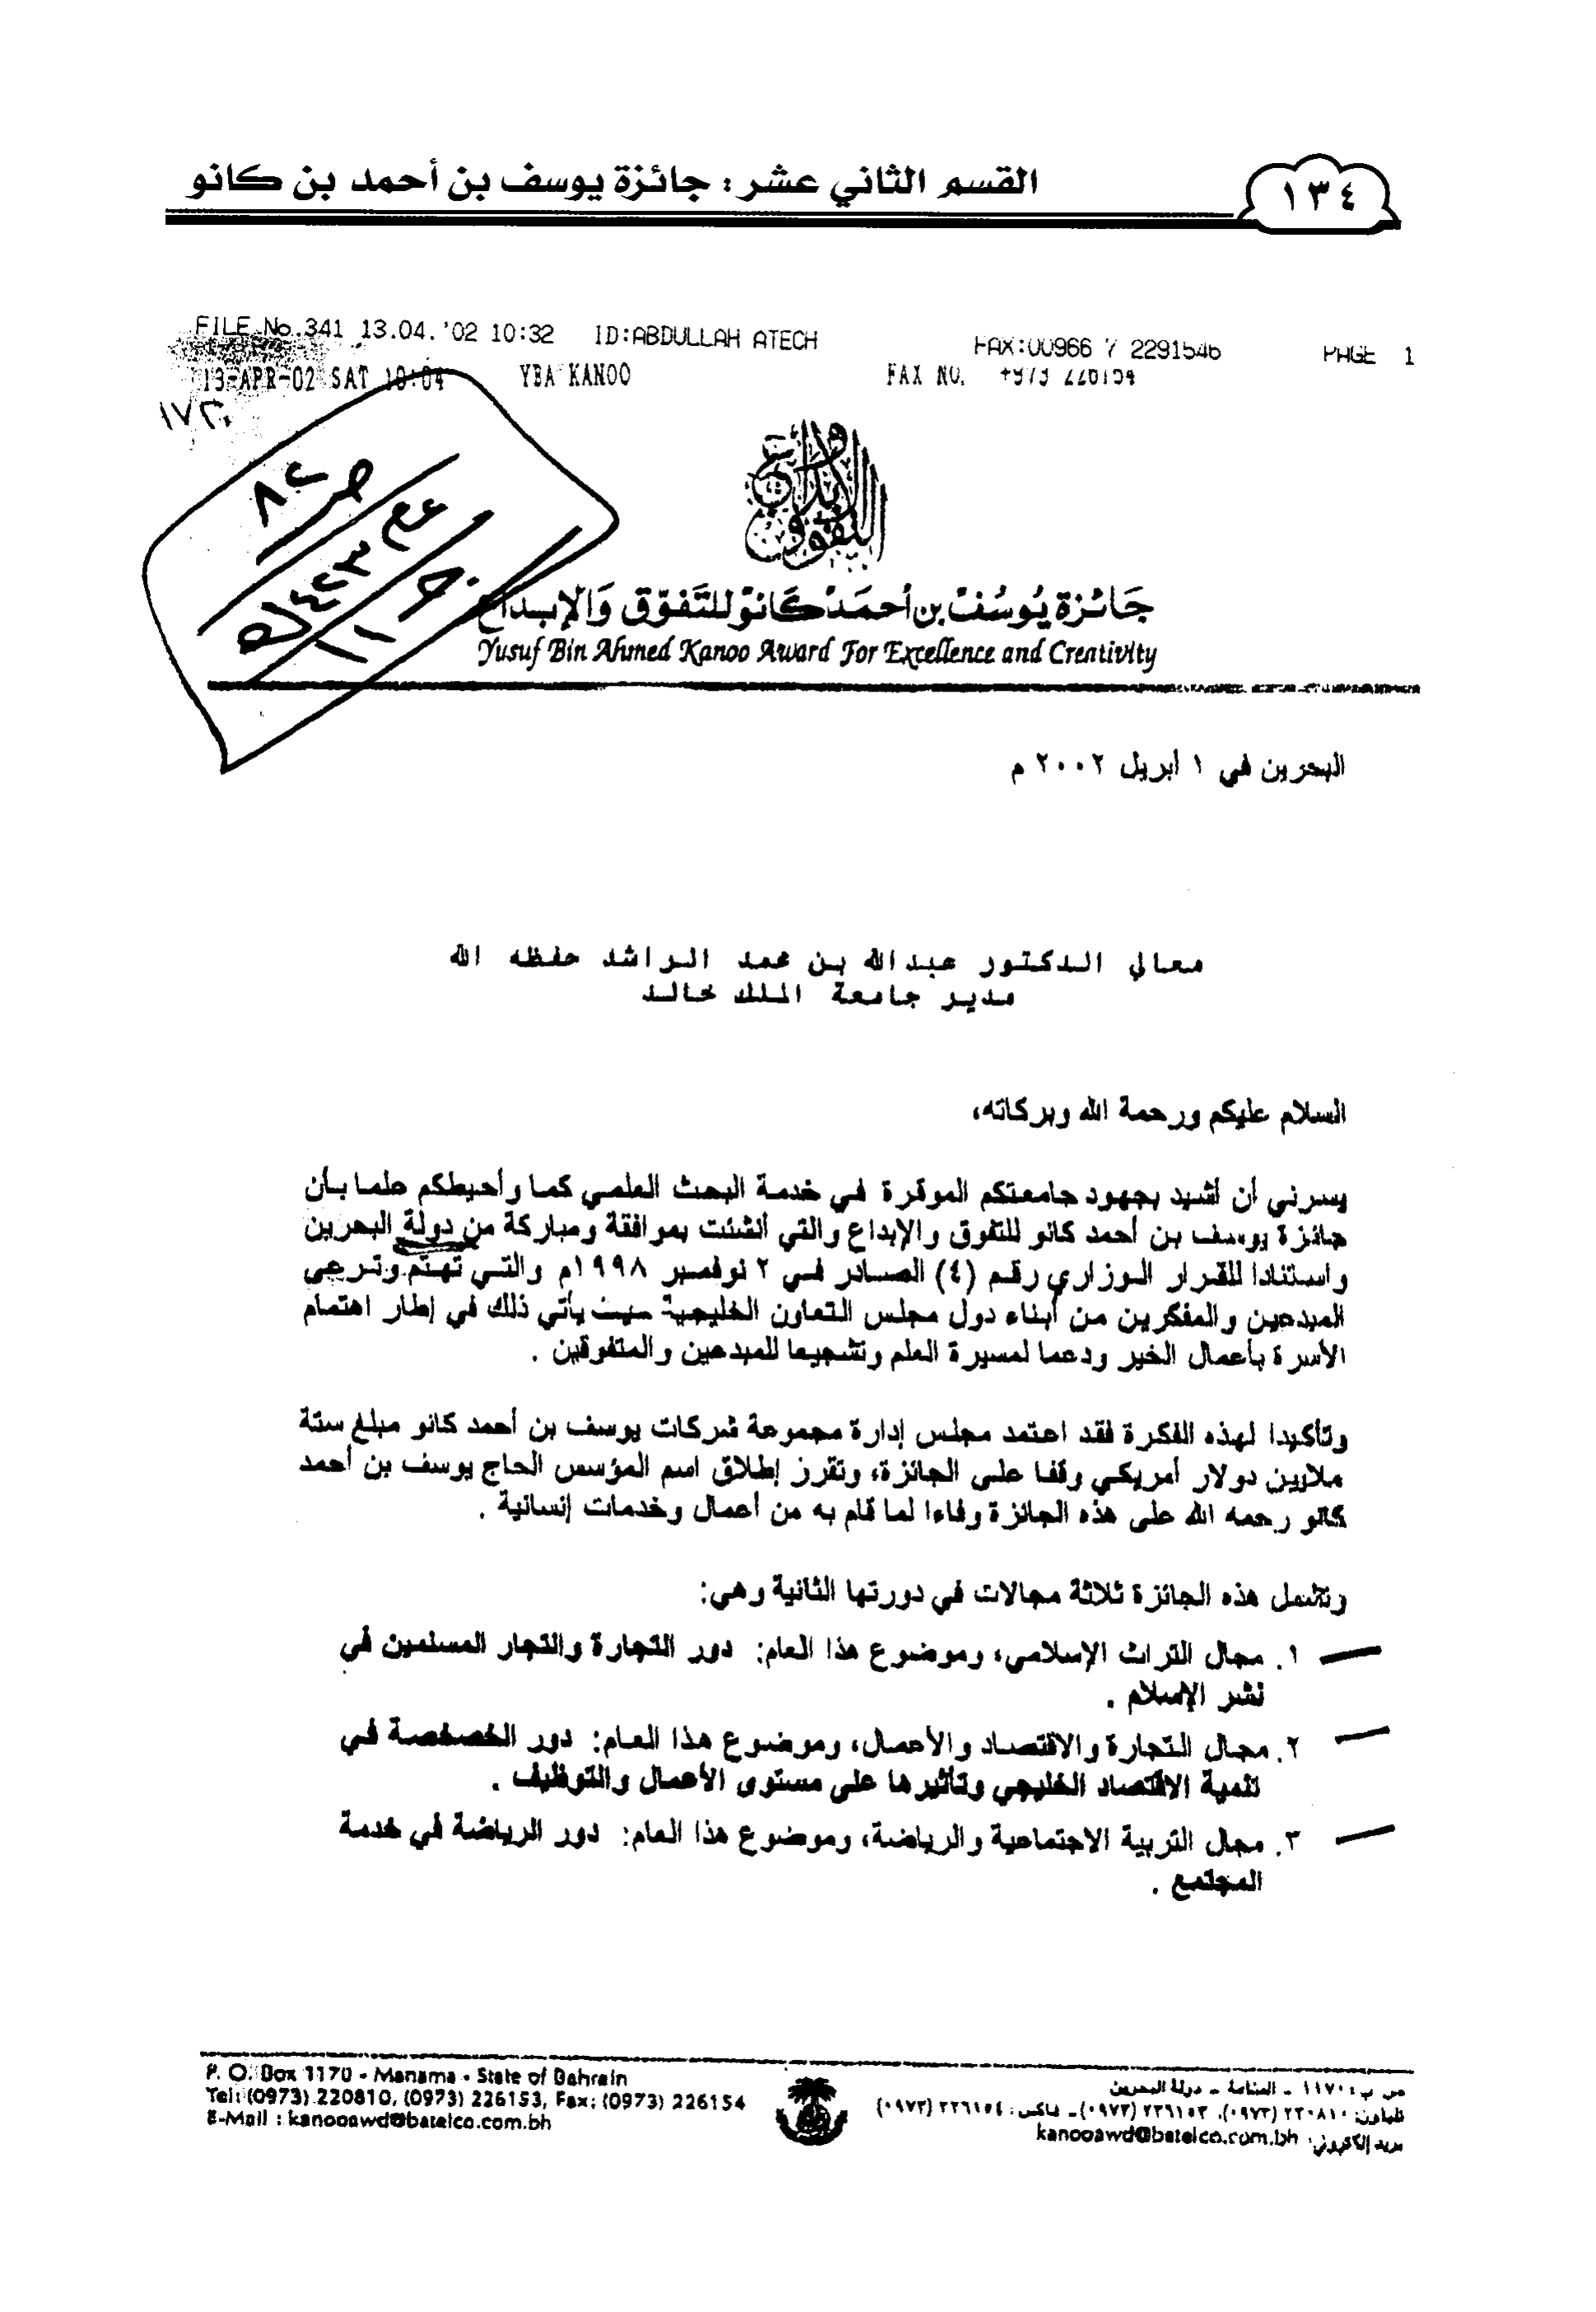 القسم الثاني عشر : جائزة يوسف بن أحمد بن كانو
١٣٤
FILE No.341 13.04.'02 10:32 ID:ABDULLAH ATECH FAX:00966 7 2291546 PAGE 1
13-APR-02 SAT 10:04 YBA KANOO FAX NO. +973 226154
جَائزة يُوسُف بن أحمَد كَانو للتَفوّق وَالإبداع
Yusuf Bin Ahmed Kanoo Award For Excellence and Creativity
البحرين في ١ أبريل ٢٠٠٢ م
معالي الدكتور عبدالله بن محمد الراشد حفظه الله
مدير جامعة الملك خالد
السلام عليكم ورحمة الله وبركاته،
يسرني أن أشيد بجهود جامعتكم الموقرة في خدمة البحث العلمي كما وأحيطكم علما بأن
جائزة يوسف بن أحمد كانو للتفوق والإبداع والتي أنشئت بموافقة ومباركة من دولة البحرين
واستنادا للقرار الوزاري رقم (٤) الصادر في ٢ نوفمبر ١٩٩٨م والتي تهتم وترعى
المبدعين والمفكرين من أبناء دول مجلس التعاون الخليجية حيث يأتي ذلك في إطار اهتمام
الأسرة بأعمال الخير ودعما لمسيرة العلم وتشجيعا للمبدعين والمتفوقين .
وتأكيدا لهذه الفكرة فقد اعتمد مجلس إدارة مجموعة شركات يوسف بن أحمد كانو مبلغ ستة
ملايين دولار أمريكي وقفا على الجائزة، وتقرر إطلاق اسم المؤسس الحاج يوسف بن أحمد
كانو رحمه الله على هذه الجائزة وفاءا لما قام به من أعمال وخدمات إنسانية .
وتشمل هذه الجائزة ثلاثة مجالات في دورتها الثانية وهي:
١. مجال التراث الإسلامي، وموضوع هذا العام: دور التجارة والتجار المسلمين في
نشر الإسلام .
٢. مجال التجارة والاقتصاد والأعمال، وموضوع هذا العام: دور الخصخصة في
تنمية الاقتصاد الخليجي وتأثيرها على مستوى الأعمال والتوظيف .
٣. مجال التربية الاجتماعية والرياضة، وموضوع هذا العام: دور الرياضة في خدمة
المجتمع .
P. O. Box 1170 - Manama - State of Bahrain
Tel: (0973) 220810, (0973) 226153, Fax: (0973) 226154
E-Mail : kanooawd@batelco.com.bh
ص ب : ١١٧٠ - المنامة - دولة البحرين
تليفون: ٢٢٠٨١٠ (٠٩٧٣)، ٢٢٦١٥٣ (٠٩٧٣)ـ فاكس: ٢٢٦١٥٤ (٠٩٧٣)
بريد إلكتروني: kanooawd@batelco.com.bh